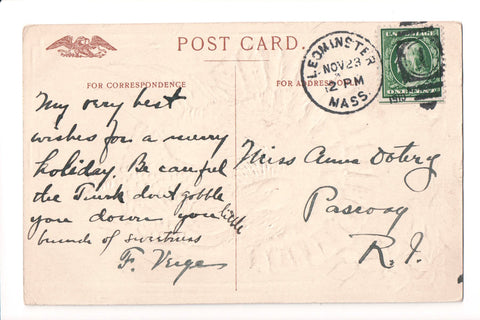 POST CARD
FOR CORRESPONDENCE
FOR ADDRESS O
LEOMINSTER
NOV 23
12 PM
MASS.
U.S. POSTAGE
ONE
My very best
wishes for a merry
holiday. Be careful
the Turk don't gobble
you down you little
bunch of sweetness
F. Verge
Miss Anna Dotery
Pascoag
R.I.